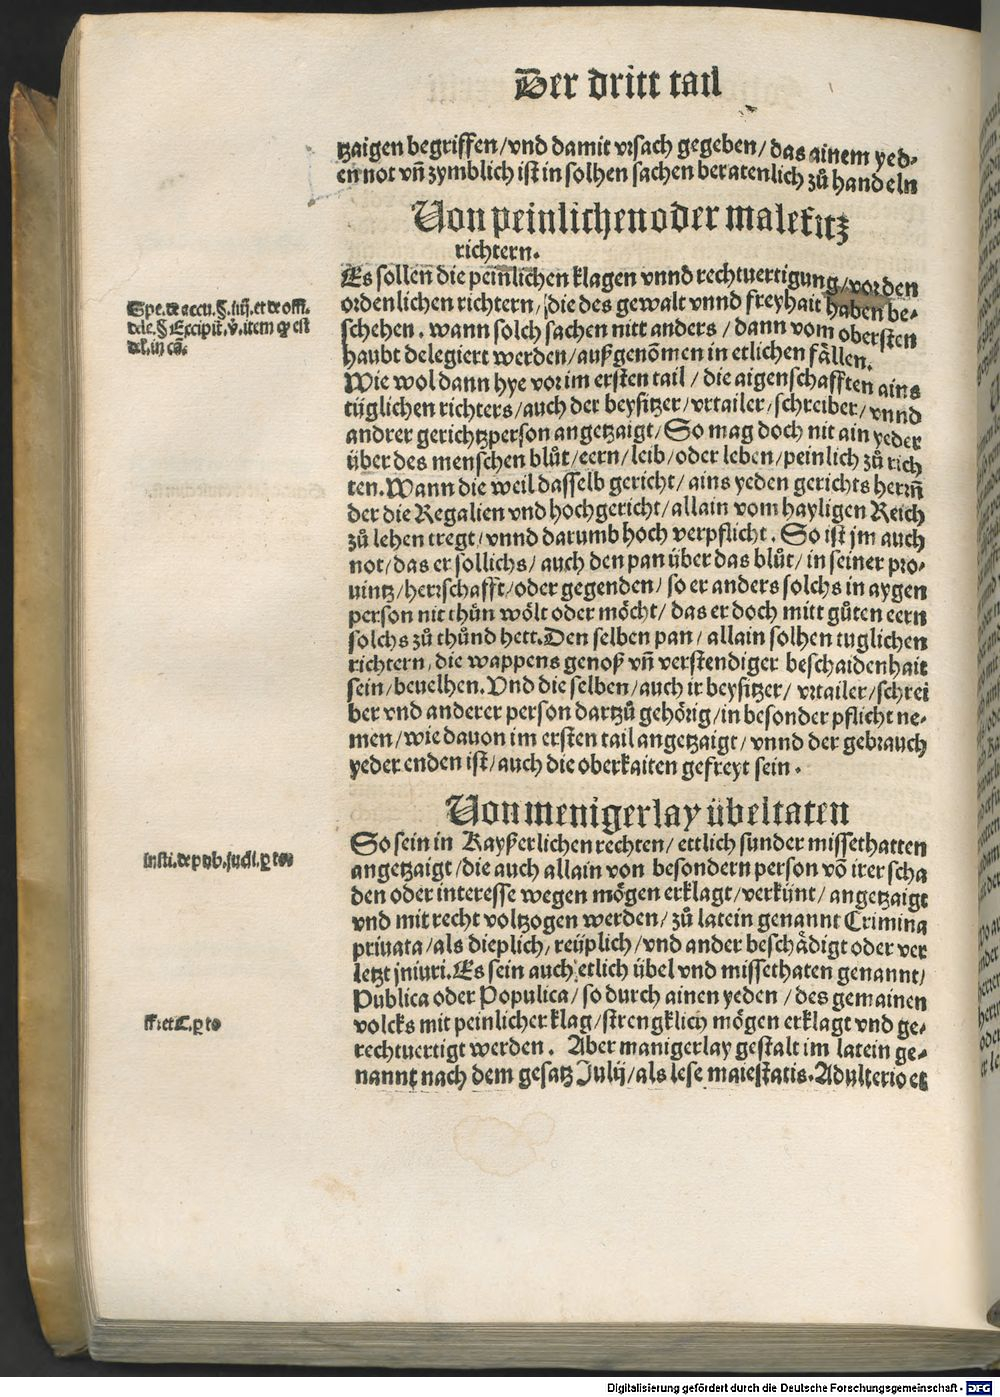 Der dritt tail
tzaigen begriffen/vnd damit vrsach gegeben/das ainem yed-
en not vñ zymblich ist in solhen sachen beratenlich zů handeln
Von peinlichen oder malefitz
richtern.
Es sollen die peinlichen klagen vnnd rechtuertigung/vor den
ordenlichen richtern/die des gewalt vnnd freyhait haben be-
schehen. wann solch sachen nitt anders/dann vom obersten
haubt delegiert werden/außgenõmen in etlichen fällen.
Spe. de accu. §. iiij. et de offi.
dele. § Excipit. v̓. item q est
del. in cã.
Wie wol dann hye vor im ersten tail/die aigenschafften ains
tüglichen richters/auch der beysitzer/vrtailer/schreiber/vnnd
andrer gerichtzperson angetzaigt/So mag doch nit ain yeder
über des menschen blůt/eern/leib/oder leben/peinlich zů rich
ten. Wann die weil dasselb gericht/ains yeden gerichts herrñ
der die Regalien vnd hochgericht/allain vom hayligen Reich
zů lehen tregt/vnnd darumb hoch verpflicht. So ist jm auch
not/das er sollichs/auch den pan über das blůt/in seiner pro-
uintz/herrschafft/oder gegenden/so er anders solchs in aygen
person nit thůn wölt oder möcht/das er doch mitt gůten eern
solchs zů thůnd hett. Den selben pan/allain solhen tuglichen
richtern, die wappens genoß vñ verstendiger beschaidenhait
sein/beuelhen. Vnd die selben/auch ir beysitzer/vrtailer/schrei
ber vnd anderer person dartzů gehörig/in besonder pflicht ne-
men/wie dauon im ersten tail angetzaigt/vnnd der gebrauch
yeder enden ist/auch die oberkaiten gefreyt sein.
Von menigerlay übeltaten
So sein in Kayßerlichen rechten/ettlich sunder missethatten
insti. de pub. judi. ꝑ to.
angetzaigt/die auch allain von besondern person võ irer scha
den oder interesse wegen mögen erklagt/verkünt/angetzaigt
vnd mit recht voltzogen werden/zů latein genannt Crimina
priuata/als dieplich/reüplich/vnd ander beschädigt oder ver
letzt jniuri. Es sein auch etlich übel vnd missethaten genannt/
Publica oder Populica/so durch ainen yeden/des gemainen
volcks mit peinlicher klag/strengklich mögen erklagt vnd ge-
ff. et C. ꝑ to
rechtuertigt werden. Aber manigerlay gestalt im latein ge-
nannt nach dem gesatz Julij/als lese maiestatis. Adulterio et
Digitalisierung gefördert durch die Deutsche Forschungsgemeinschaft - DFG